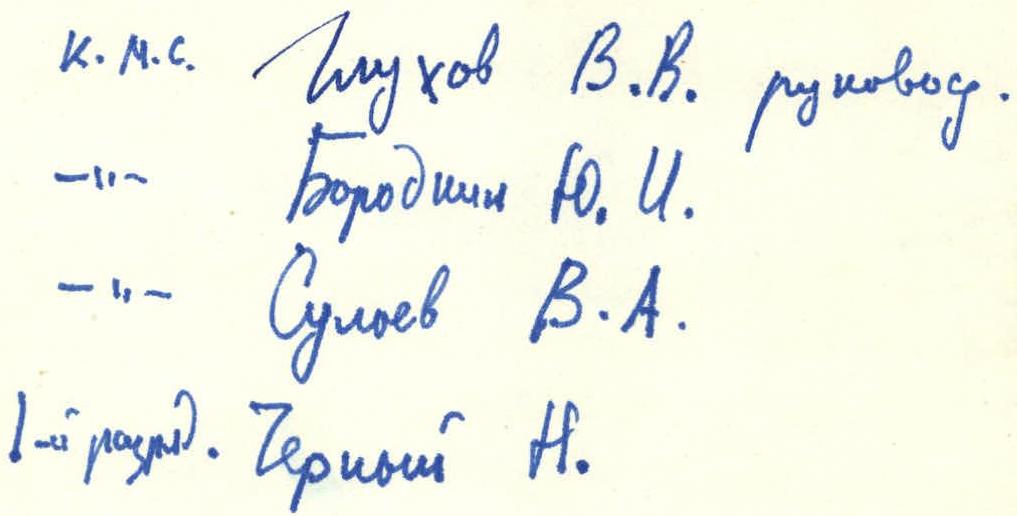 К.М.С. Глухов В.В. руковод.
—"— Бородкин Ю.И.
—"— Сулоев В.А.
1-й разряд. Черный Н.